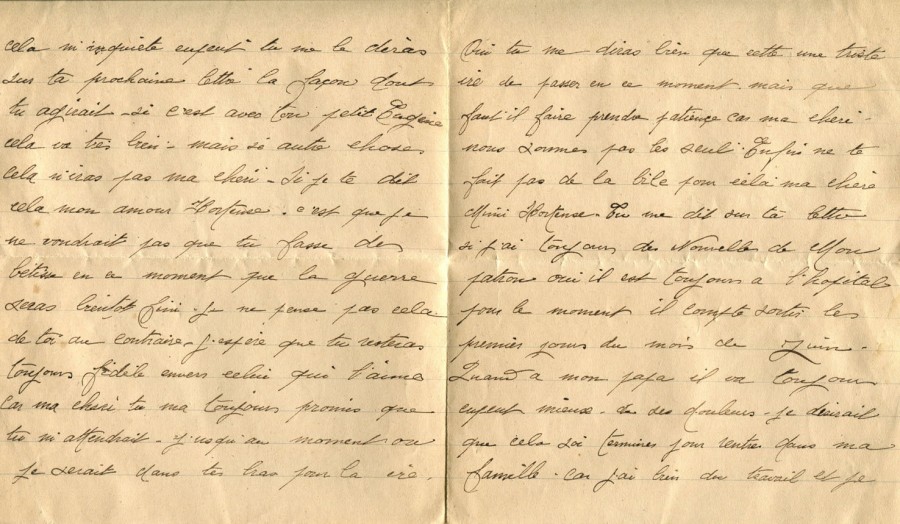 cela m'inquiete enfent tu me le diras
sur ta prochaine lettre la façon dont
tu agirait - si c'est avec ton petit Eugène
cela va très bien - mais si autre choses
cela n'iras pas ma cheri - Si je te dit
cela mon amour Hortense - c'est que je
ne voudrait pas que tu fasse des
bétise en ce moment que la guerre
seras bientot fini - Je ne pense pas cela
de toi au contraire - j'espère que tu resteras
toujours fidèle envers celui qui t'aime
car ma cheri tu ma toujours promis que
tu m'attendrait - jusqu'au moment ou
je serait dans tes bras pour la vie.
Oui tu me diras bien que cette une triste
vie de passer en ce moment mais que
faut'il faire prendre patience car ma cheri -
nous sommes pas les seul. Enfin ne te
fait pas de la bile pour cela ma chère
Mimi Hortense. Tu me dit sur ta lettre
si j'ai toujours des Nouvelle de Mon
patron oui il est toujours a l'hopital
pour le moment il compte sortir les
premier jours du mois de Juin -
Quand a mon papa il va toujours
mieux - de ses douleurs - je désirait
que cela soi terminer pour rentrer dans ma
famille - car j'ai bien du travail et je